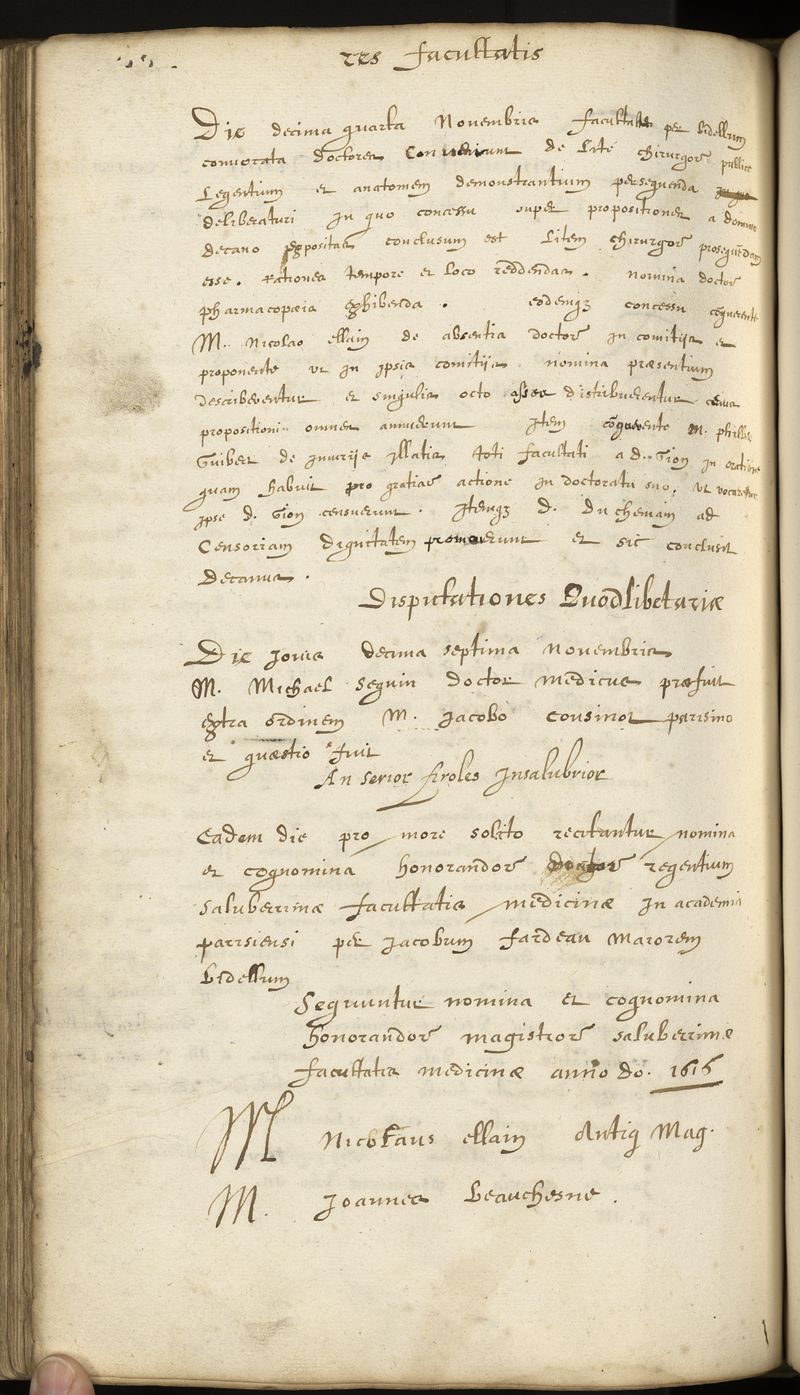 res facultatis
Die decima quarta Novembris facultatis per bidellum
convocata doctores Convenerunt de Lite chirurgor publice
Legentium et anatomem demonstrantium persequenda
deliberaturi in quo concessu super propositiones a domino
decano propositas conclusum est Litem chirurgor prosequendam
esse. Rationes tempore et loco reddendas. nomina doctor
pharmacopæis exhibenda. eodemq concessu coquerente
M. Nicolao ellain de absentia doctor in comitijs et
proponente ut in ipsis comitijs nomina præsentium
describerentur et singulis octo asses distribuerentur cuius
propositioni omnes annuerunt Item coquerente M. philber
Guibert de iniurijs illatis toti facultati a d. Gion in oratione
quam habuit pro gratiar actione in doctoratu suo, ut vocaretur
ipse d. Gion censuerunt. Itemq d. du chemin ad
Censoriam dignitatem promoverunt et sic conclusit
Decanus.
Disputationes Quodlibetariæ
Die Jovis decima septima Novembris
M. Michael Seguin doctor medicus præfuit
extra ordinem M. Jacobo Cousinot parisino
et quæstio fuit
An serior proles Insalubrior
Eadem die pro more solito recitantur nomina
et cognomina honorandor doctor regentium
saluberrimæ facultatis medicinæ in academia
parisiensi per Jacobum fardeau maiorem
bidellum
Sequuntur nomina et cognomina
honorandor magistror saluberrimæ
facultatis medicinæ anno do. 1616
M Nicolaus ellain Antiq Mag.
M. Joannes Beauchesne.